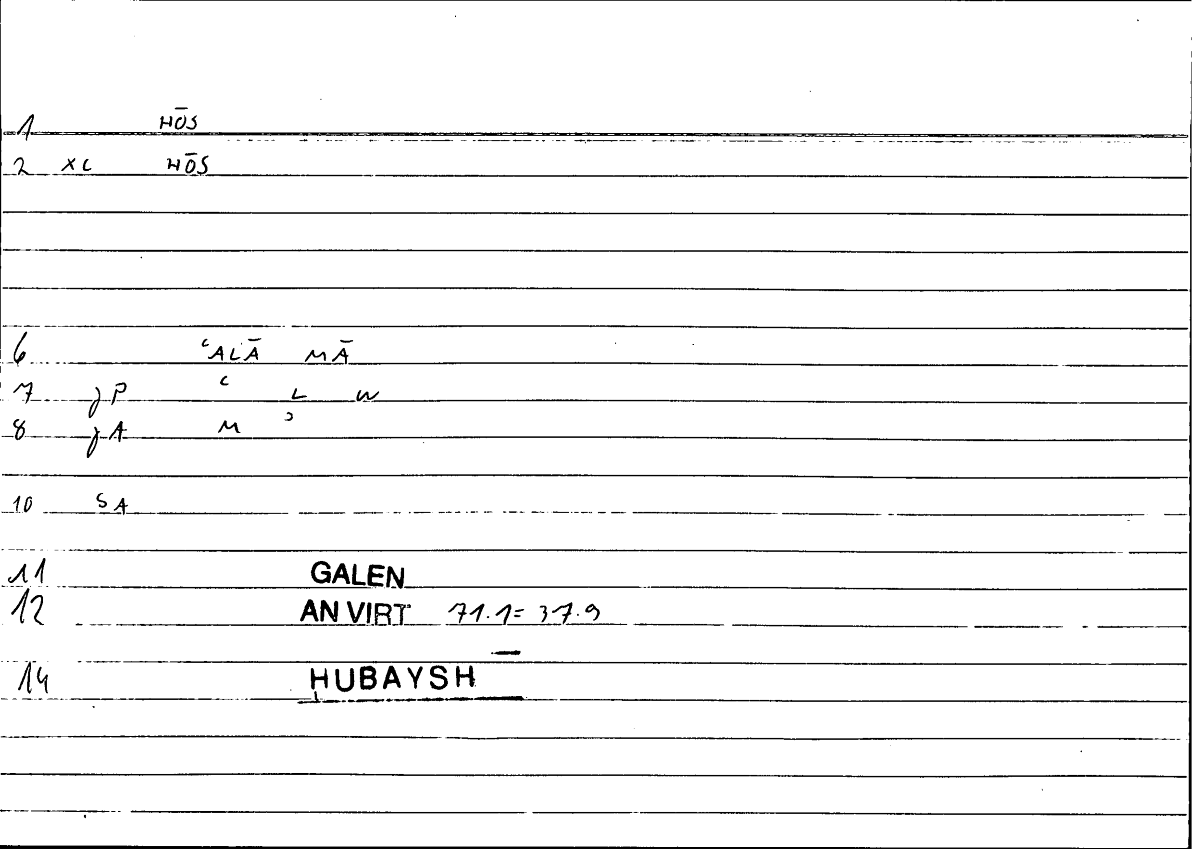 1 HŌS
2 XC HŌS
6 ʿALĀ MĀ
7 jP ʿ L W
8 jA M ʾ
10 SA
11 GALEN
12 AN VIRT 71.1= 37.9
14 HUBAYSH